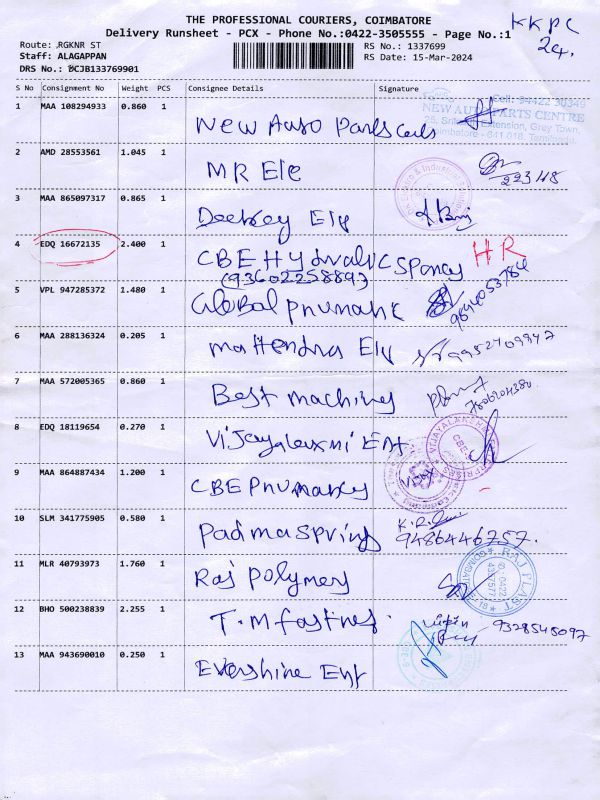 THE PROFESSIONAL COURIERS, COIMBATORE
Delivery Runsheet - PCX - Phone No.:0422-3505555 - Page No.:1
KKPC
24.
Route: .RGKNR ST RS No.: 1337699
Staff: ALAGAPPAN RS Date: 15-Mar-2024
DRS No.: DCJB133769901
S No Consignment No Weight PCS Consignee Details Signature
1 MAA 108294933 0.860 1 New Auto Parts
Cell: 94422 30349
NEW AUTO PARTS CENTRE
Extension, Grey Town,
Coimbatore - 641 018. Tamilnadu
2 AMD 28553561 1.045 1 MR Ele 223148
3 MAA 865097317 0.865 1 Ele
4 EDQ 16672135 2.400 1 CBE Hydraulics HR
(9360225889)
5 VPL 947285372 1.480 1 Global pnumatic 9894053784
6 MAA 288136324 0.205 1 Mahendra Ele 9952409947
7 MAA 572005365 0.860 1 Best machinery
8 EDQ 18119654 0.270 1 Vijayalaxmi Ent
9 MAA 864887434 1.200 1 CBE Pnumatics
10 SLM 341775905 0.580 1 Padma Springs 9486446757.
11 MLR 40793973 1.760 1 Raj polymers
RAJ PLAST
12 BHO 500238839 2.255 1 T.M fastners. 9328545097
13 MAA 943690010 0.250 1 Evershine Ent